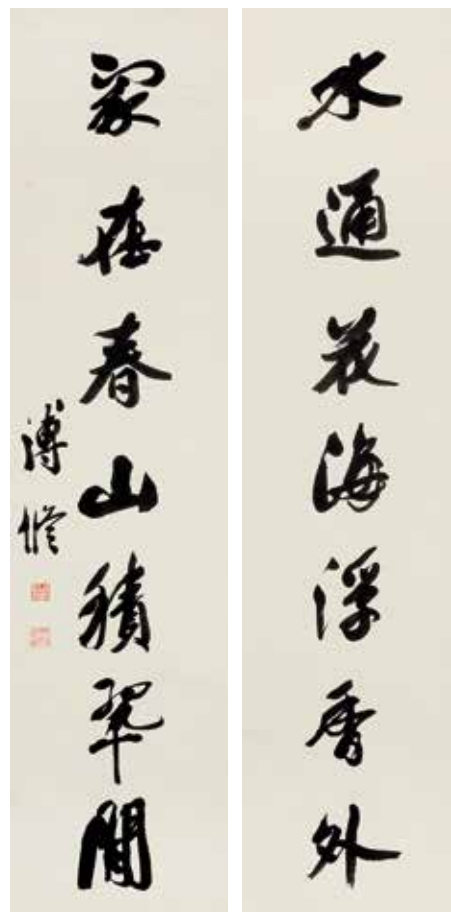 水通花海浮香外
家在春山積翠間
溥